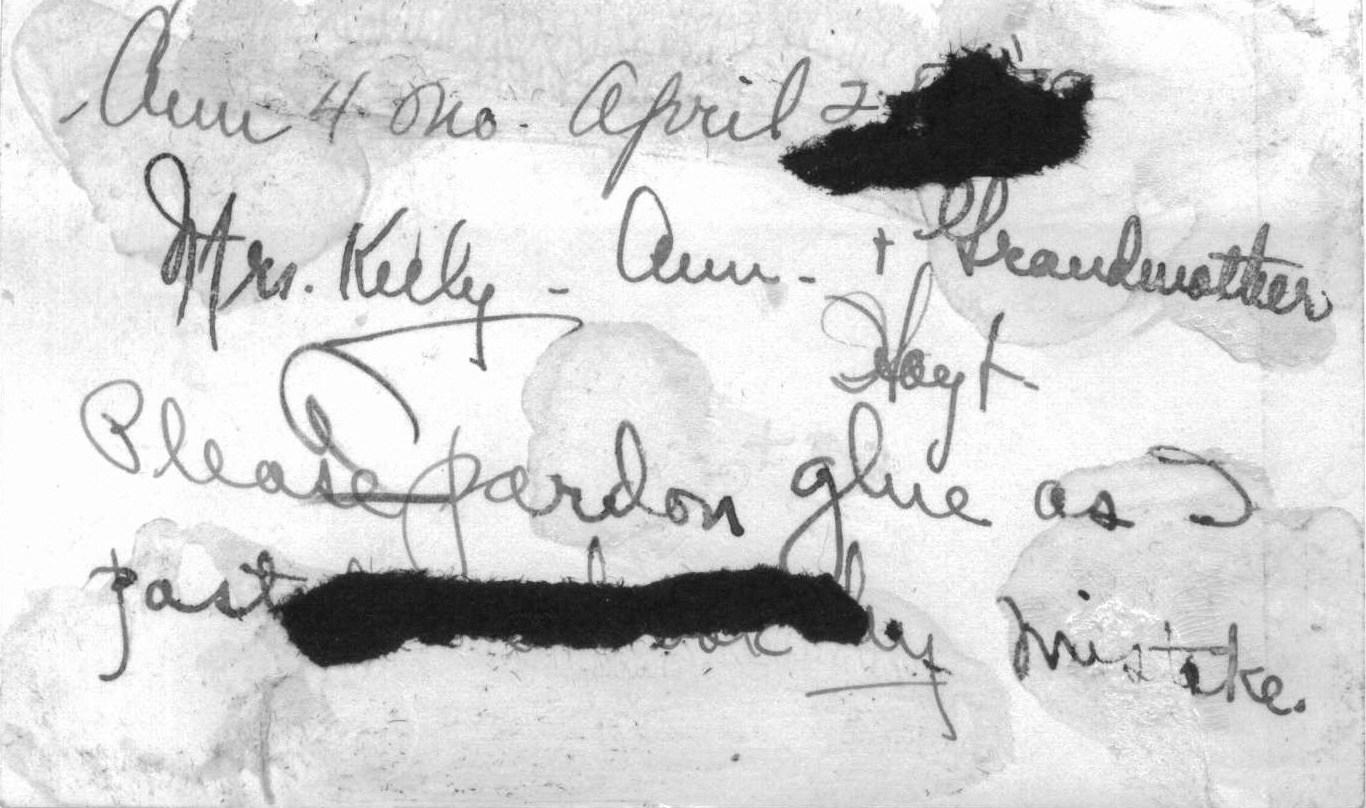 Ann 4 mo. April 2
Mrs. Kelly - Ann - + Grandmother
Hoyt.
Please pardon glue as I
past by mistake.